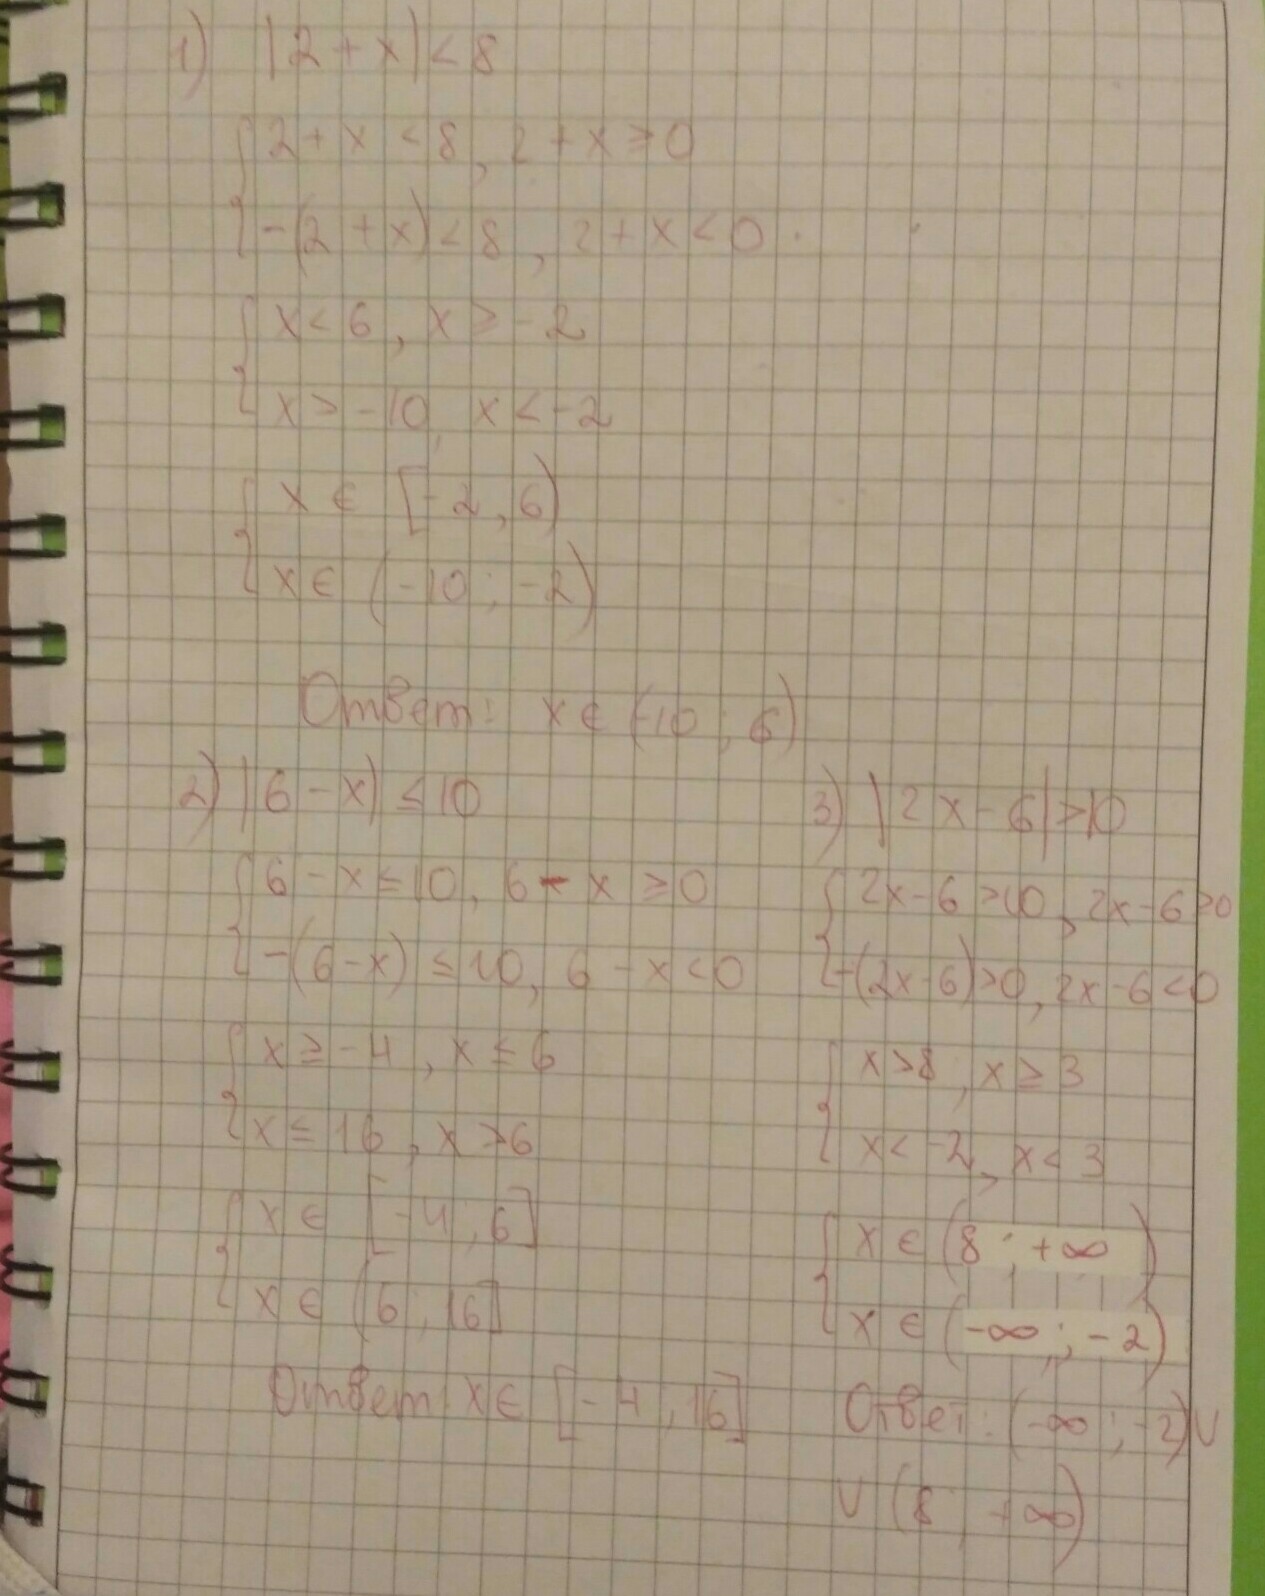 1) |2 + x| < 8
{ 2 + x < 8, 2 + x ≥ 0
{ -(2 + x) < 8, 2 + x < 0.
{ x < 6, x ≥ -2
{ x > -10, x < -2
{ x ∈ [-2, 6)
{ x ∈ (-10; -2)
Ответ: x ∈ (-10; 6)
2) |6 - x| ≤ 10
{ 6 - x ≤ 10, 6 - x ≥ 0
{ -(6 - x) ≤ 10, 6 - x < 0
{ x ≥ -4, x ≤ 6
{ x ≤ 16, x > 6
{ x ∈ [-4; 6]
{ x ∈ (6; 16]
Ответ: x ∈ [-4; 16]
3) |2x - 6| > 10
{ 2x - 6 > 10, 2x - 6 ≥ 0
{ -(2x - 6) > 0, 2x - 6 < 0
{ x > 8, x ≥ 3
{ x < -2, x < 3
{ x ∈ (8; +∞)
{ x ∈ (-∞; -2)
Ответ: (-∞; -2) ∪
∪ (8; +∞)